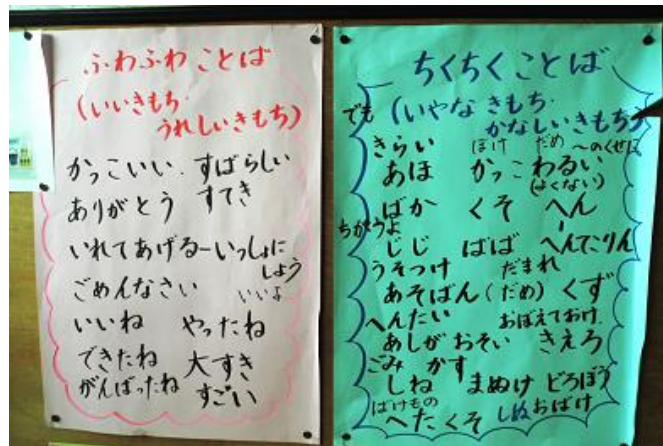 ふわふわ ことば
(いいきもち・
うれしいきもち)
かっこいい・すばらしい
ありがとう すてき
いれてあげるーいっしょに
しよう
ごめんなさい いいよ
いいね やったね
できたね 大すき
がんばったね すごい
ちくちく ことば
でも (いやな きもち・
かなしいきもち)
きらい ぼけ だめ 〜のくせに
あほ かっこ わるい
(よくない)
ばか くそ へん
ちがうよ
じじ ばば へんてこりん
うそつけ だまれ
あそばん(だめ) くず
へんたい おぼえておけ
あしがおそい きえろ
ごみ かす
しね まぬけ どろぼう
ばけもの
へたくそ しぬ おばけ